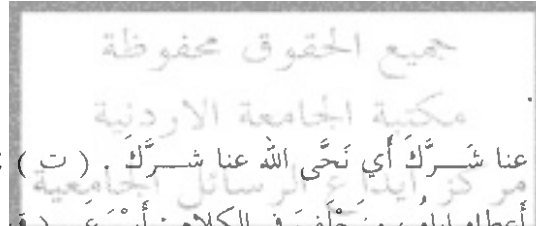 جميع الحقوق محفوظة
مكتبة الجامعة الاردنية
عنا شَرَّكَ أَي نَحَّى الله عنا شَرَّكَ . ( ت ) :
مركز ايداع الرسائل الجامعية
في الكلام :